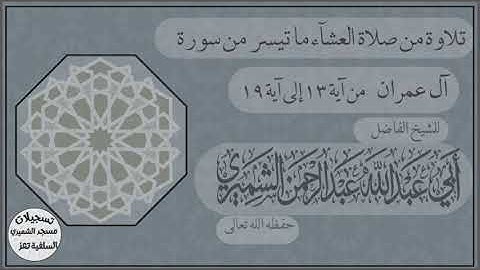 تلاوة من صلاة العشآء ما تيسر من سورة
آل عمران من آية ١٣ إلى آية ١٩
للشيخ الفاضل
أبي عبد الله عبد الرحمن الشميري
حفظه الله تعالى
تسجيلات
مسجد الشميري
السلفية تعز